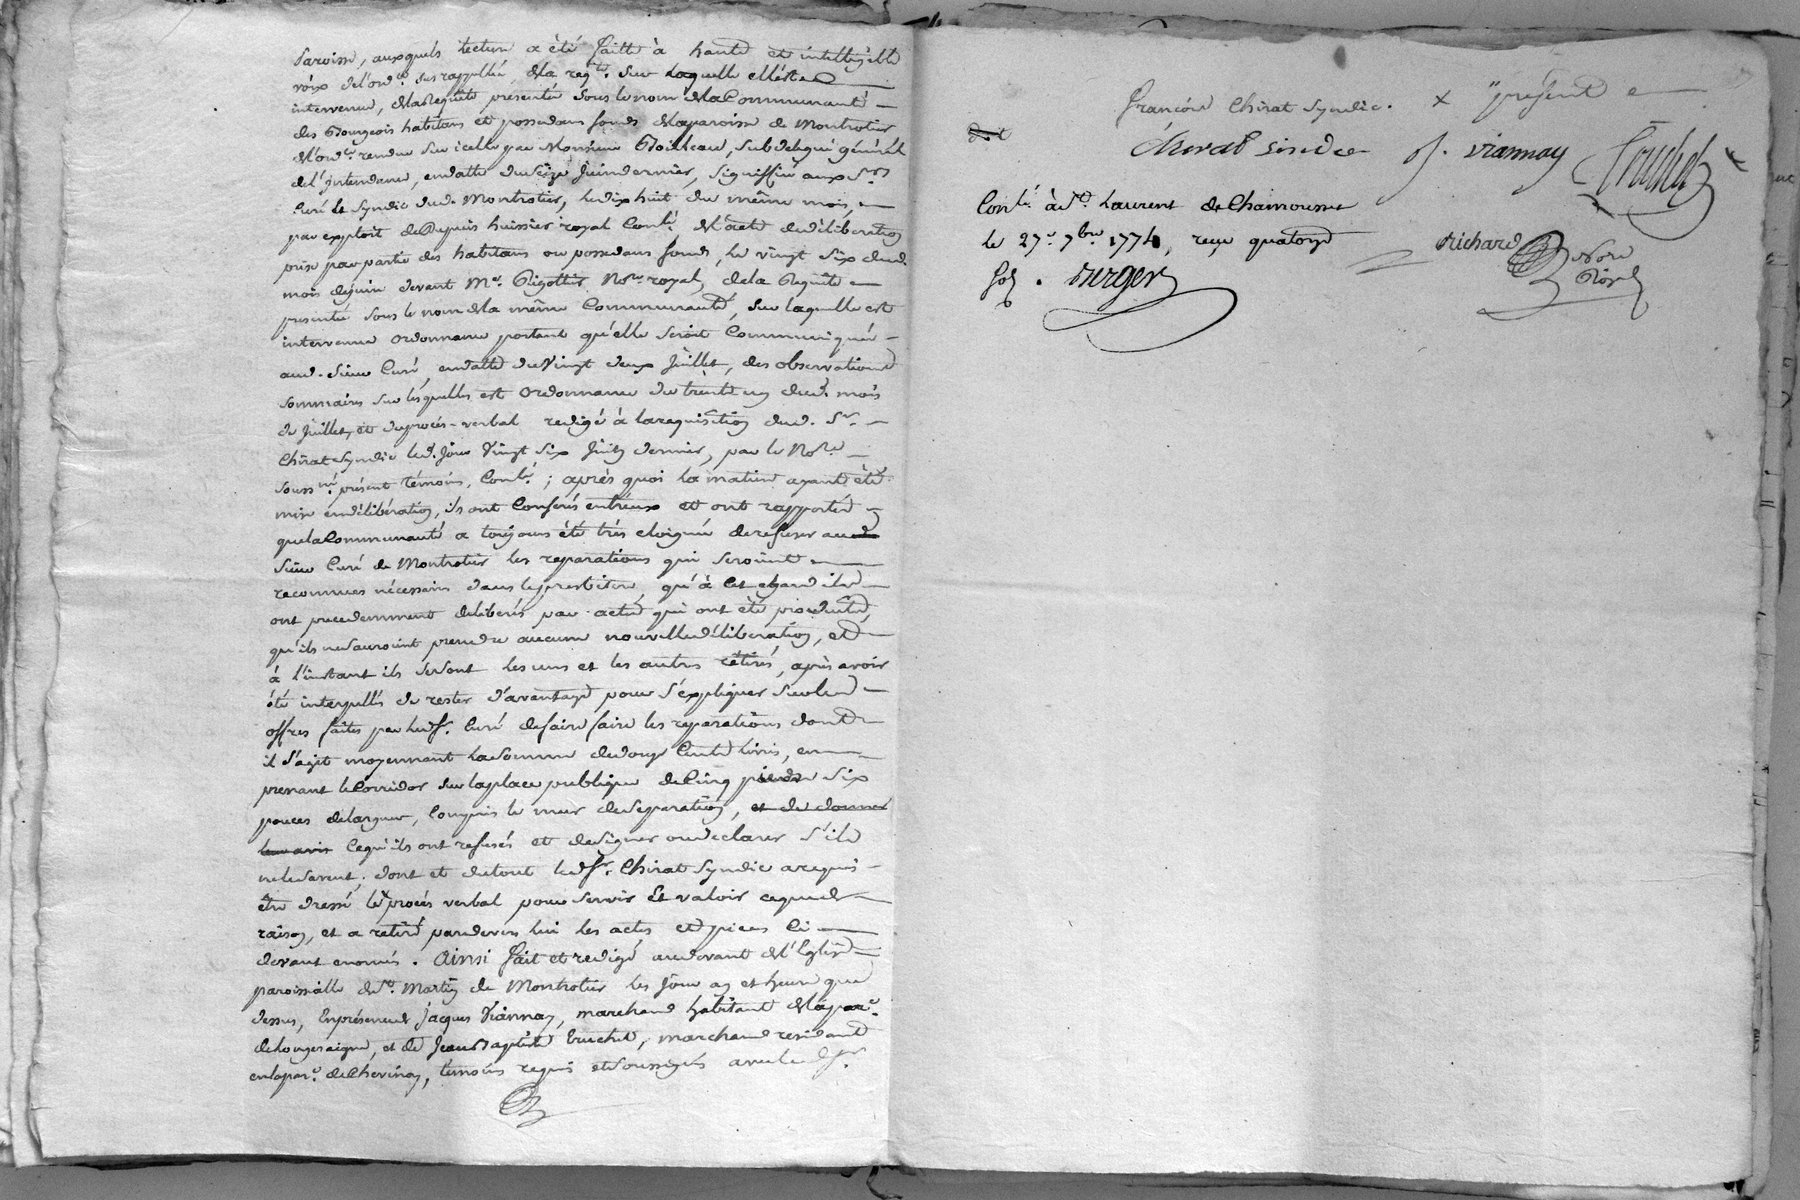 Paroisse, auxquels lecture a été faitte à haute et intelligible
voix de l'ord.ce susrappellée, de la req.te sur laquelle elle est
intervenue, de la Requête presentée sous le nom de la Communauté
des Bourgeois habitans et possedans fonds de la paroisse de Montrotier
de l'ord.ce rendue sur icelle par Monsieur Boileau, subdelegué général
de l'intendance, en datte du seize Juin dernier, signiffiée aux S.rs
Curé et Syndic dud. Montrotier, le dix huit du même mois,
par exploit de Dupuis huissier royal Conlé. de l'acte de déliberation
prise par partie des habitans ou possedans fonds, le vingt six dud.
mois de juin devant M.e Rigottier No.re royal, de la Requête
presentée sous le nom de la même Communauté, sur laquelle est
intervenue ordonnance portant qu'elle seroit Communiquée
aud. Sieur Curé, en datte du Vingt deux Juillet, des observations
sommaires sur lesquelles est ordonnance du trente un dud. mois
de Juillet, et du procès-verbal redigé à la requisition dud. S.r
Chirat Syndic led. jour Vingt six Juin dernier, par le No.re
souss.né présent témoins, Conlé. ; après quoi la matiere ayant été
mise en délibération, ils ont Conferés entr'eux et ont rapporté
que la Communauté a toujours été très eloignée de refuser aud.
Sieur Curé de Montrotier les reparations qui seroient
reconnues nécessaires dans le presbitere, qu'à cet egard ils
ont precedemment deliberés par actes qui ont été
qu'ils ne sauroient prendre aucune nouvelle déliberation, et
à l'instant ils se sont les uns et les autres rétirés, après avoir
été interpellés de rester d'avantage pour s'expliquer sur les
offres faites par led. Sr. Curé de faire faire les reparations dont
il s'agit moyennant la somme de douze Cents livres, en
prenant le Corridor sur la place publique de Cinq pieds six
pouces de largeur, Compris le mur de separation, et de donner
leur avis Ce qu'ils ont refusés et de signer ou declarer s'ils
ne le savent. dont et du tout led. Sr. Chirat Syndic a requis
être dressé le procès verbal pour servir Et valoir ce que de
raison, et a retiré pardevers lui les actes et pieces Ci
devant enoncés. Ainsi fait et redigé audevant de l'Eglise
paroissialle de S.t Martin de Montrotier les jour an et heure que
dessus, En présence de Jacques Viannay, marchand habitant de la par.e
de Longesaigne, et de Jean Baptiste truchet, marchand residant
en la par.e de Chevinay, témoins requis et soussignés avec led. Sr.
François Chirat Syndic. x "présent
Chirat Sindic J. Viannay Truchet
Conlé. à S.t Laurent de Chamousset
le 27.e 7bre 1774, reçu quatorze
Sols. Surger
Richard
No.re
Roy.l